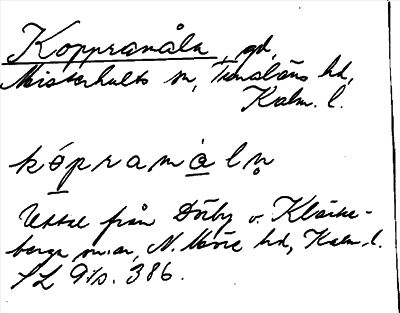 Koppramåla, gd,
Misterhults sn, Tunaläns hd,
Kalm. l.
kópramåln
Uttal från Dörby o. Kläcke-
berga sn:ar, N. Möre hd, Kalm. l.
SL 9:1 s. 386.